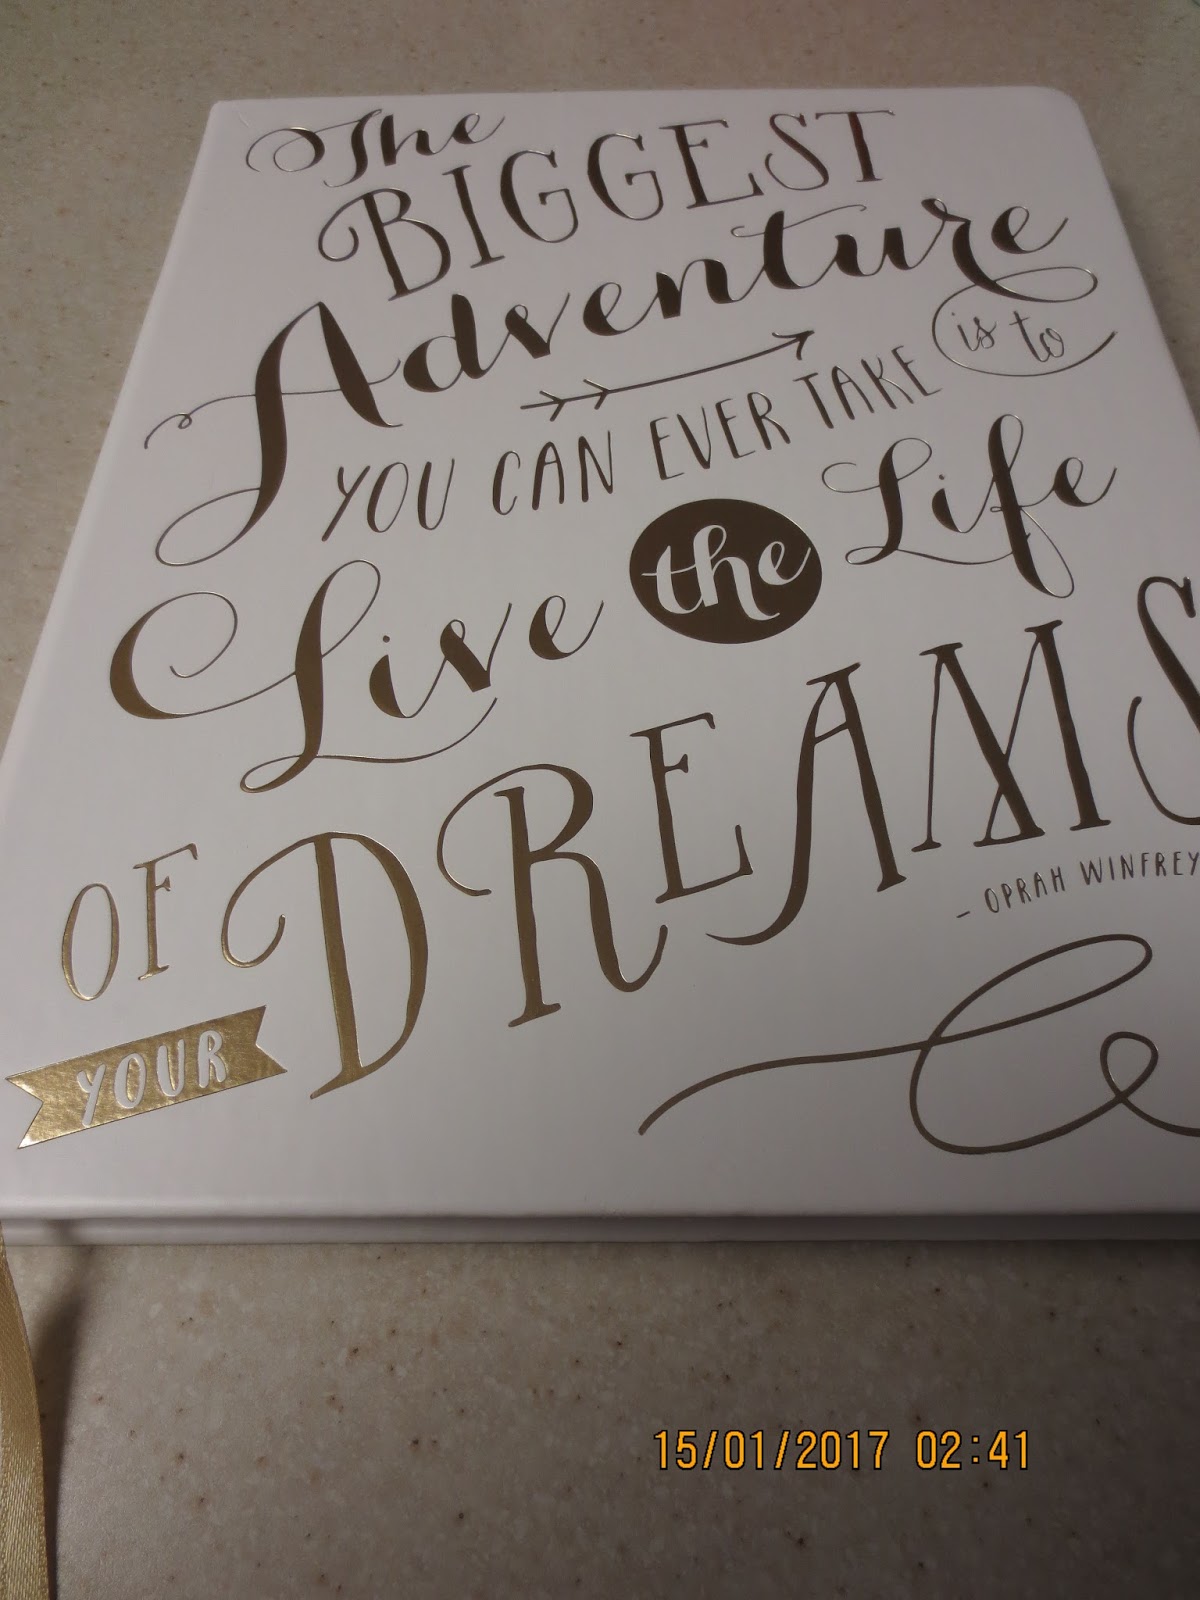 The
BIGGEST
Adventure
YOU CAN EVER TAKE is to
Live the Life
OF YOUR DREAMS
- OPRAH WINFREY
15/01/2017 02:41